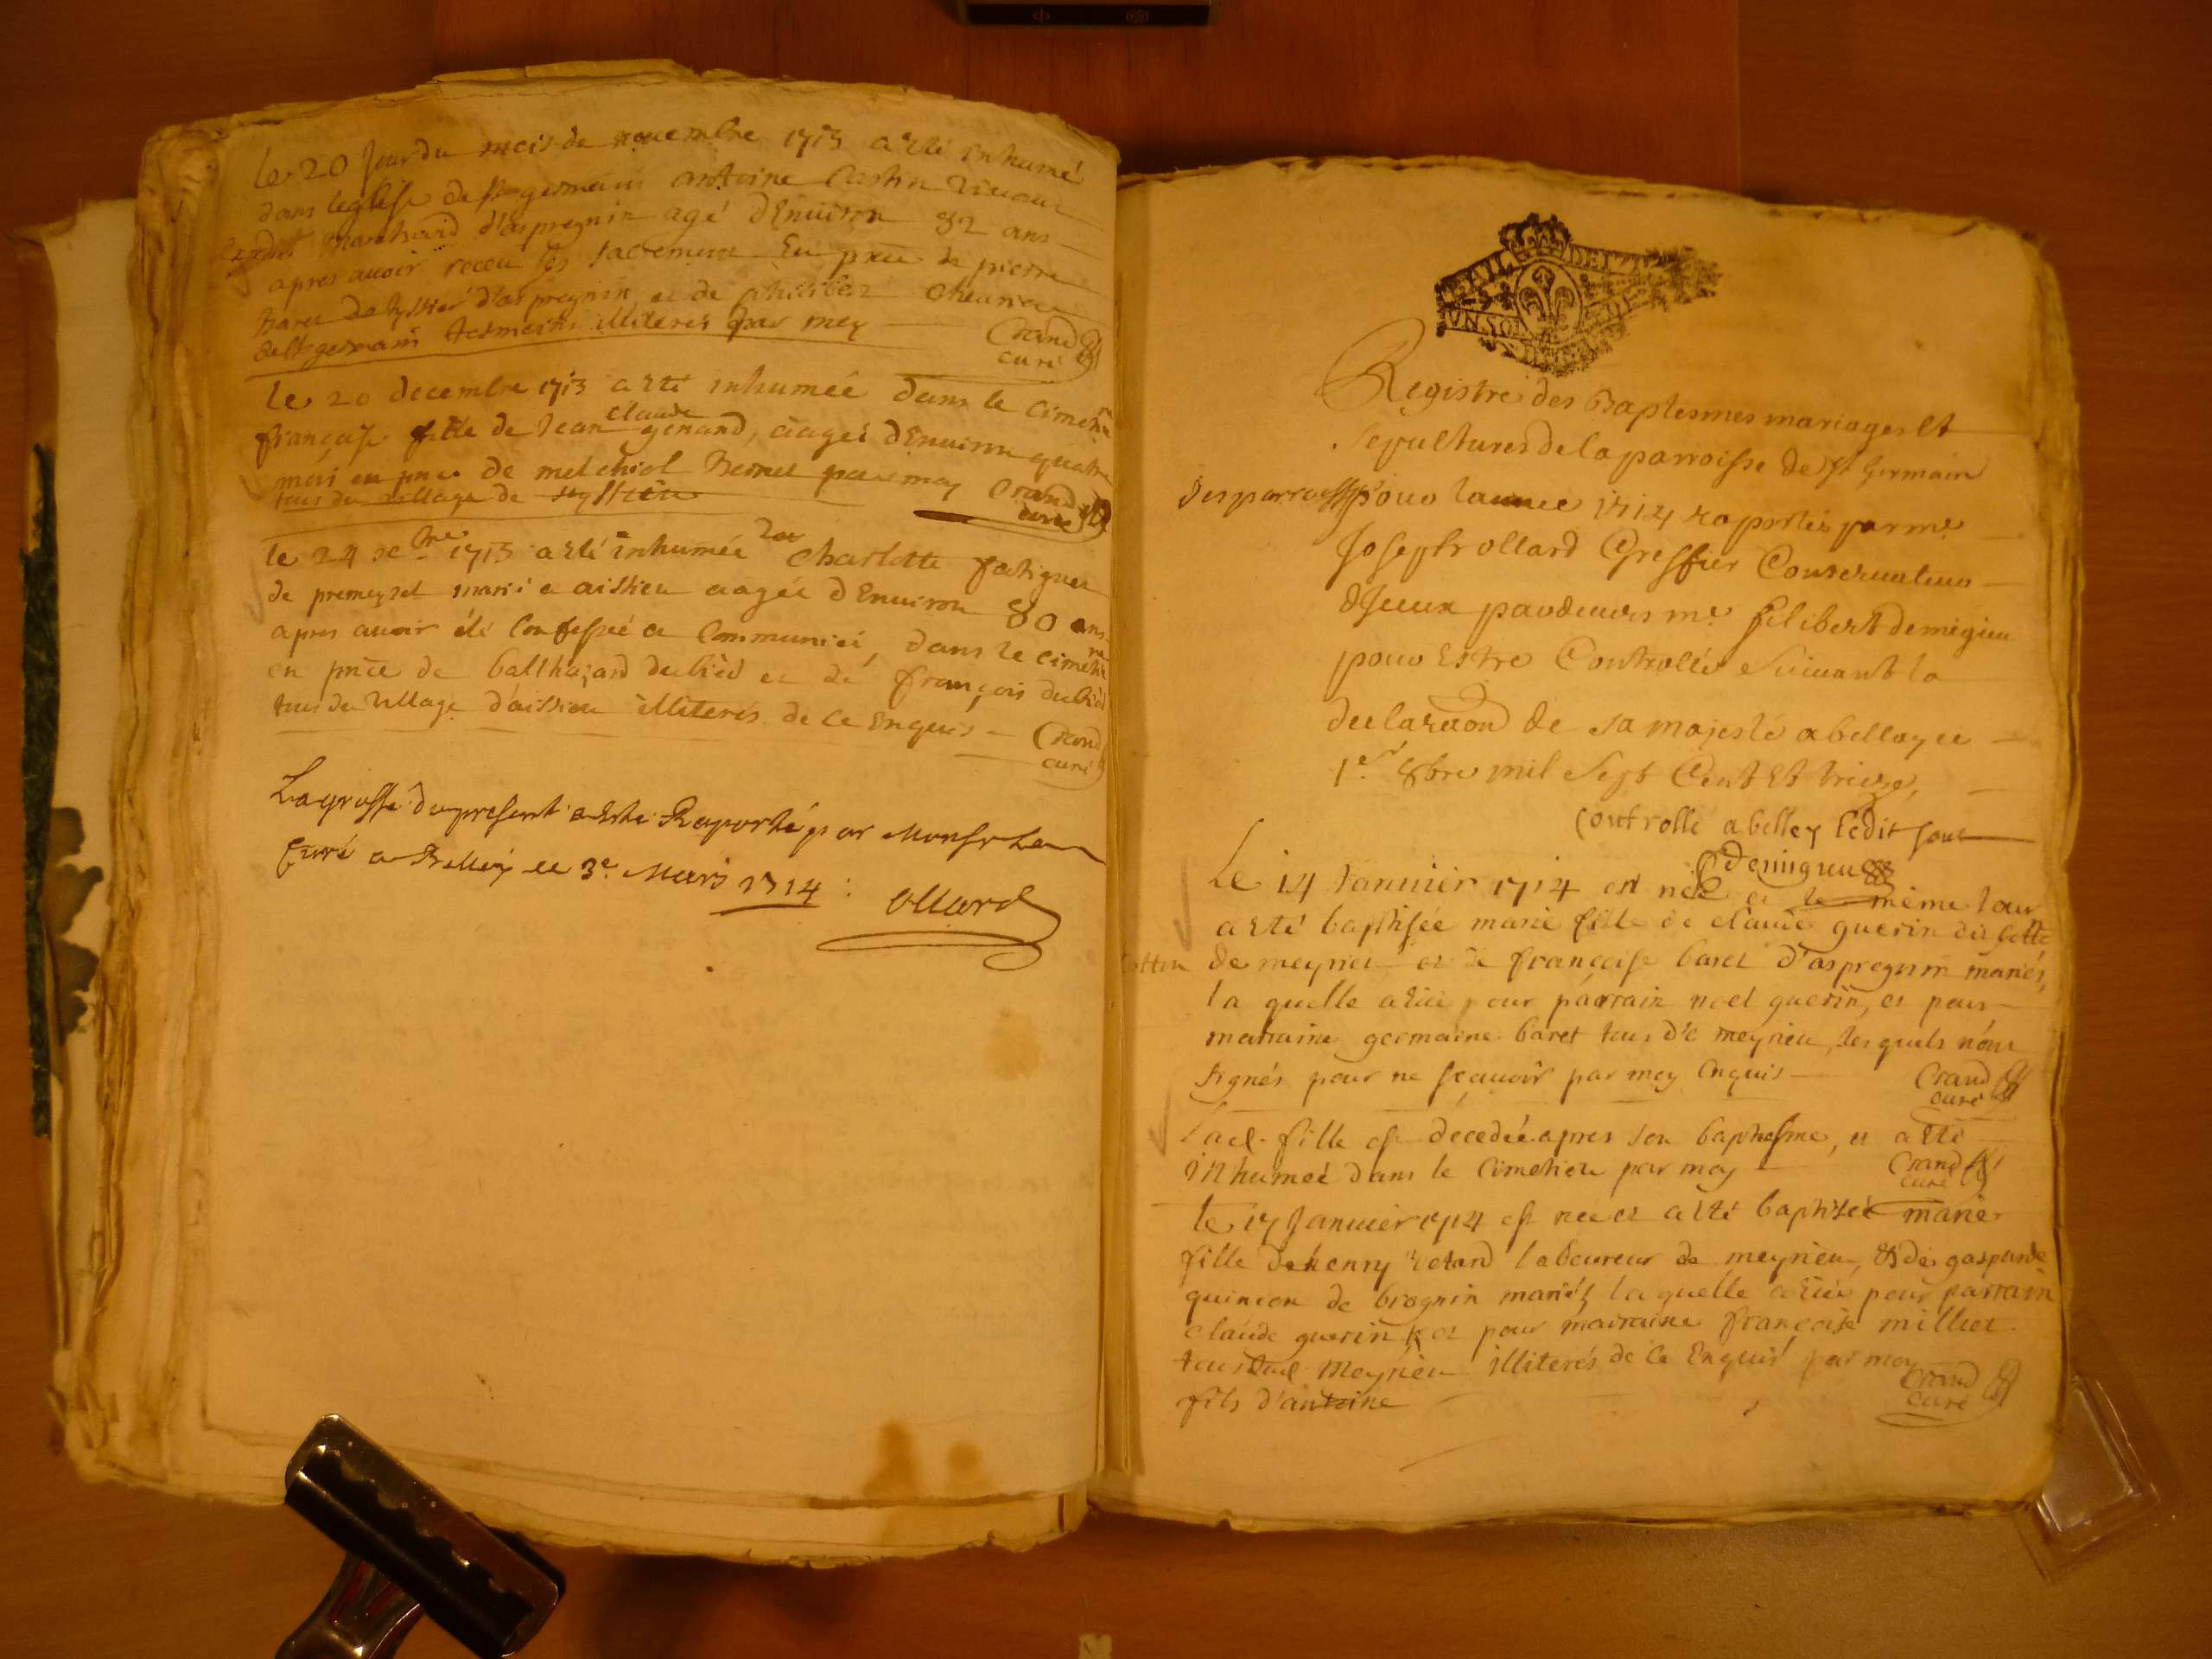 le 20 Jour du mois de nouembre 1713 a esté inhumé
dans leglise de st germain antoine Castin viuant
marchand d'aspregnin agé d'Enuiron 82 ans
apres auoir receu les sacremens En pnce de pierre
d'aspregnin, et de philibert
de st germain tesmoins illiterés par moy
Crand
curé
le 20 decembre 1713 a esté inhumée dans le cimetiere
françoise fille de Jean claude genand, aagée d'Enuiron quatre
mois en pnce de melchiol Bernet par moy Crand
tous du village de seyssieu
curé
le 24 xbre 1713 a esté inhumée charlotte
de premeyzel mariée a aissieu aagée d'Enuiron 80 ans
apres auoir été Confessée et Communiée, dans le cimetiere
en pnce de balthazard dubied et de françois dubied
tous du village d'aissieu illiterés de ce Enquis Crand
curé
La grosse du present a Este Raporté par Monsr Le
Curé a Belley ce 3e Mars 1714 :
Ollard
Registre des Baptesmes mariages Et
Sepultures de la parroisse de St Germain
Des parroisses pour lannee 1714 raportés par me
Joseph ollard Greffier Conseruateur
dJceux pardeuers me filibert demigieu
pour Estre Controllés Suiuant la
declaraon de sa majesté a belley ce
1er 8bre mil Sept Cent Et treize,
Controllé a belley ledit Jour
Demigieu
Le 14 Januier 1714 est née et le même Jour
a esté baptisée marie fille de claude guerin dit Cottin
Cottin de meyrieu et de françoise baret d'aspregnin mariés,
la quelle a eue pour parrain noel guerin, et pour
marraine germaine baret tous de meyrieu, les quels n'ont
signés pour ne sçauoir par moy enquis
Crand
curé
Lad. fille est decedée apres son baptesme, et a esté
inhumée dans le Cimetiere par moy
Crand
curé
le 17 Januier 1714 est née et a esté baptisée marie
fille de henry laboureur de meyrieu, et de gasparde
quinson de brognin mariés, la quelle a eue pour parrain
claude guerin et pour marraine françoise millet
tous dud meyrieu illiterés de ce Enquis par moy
Crand
fils d'antoine
curé